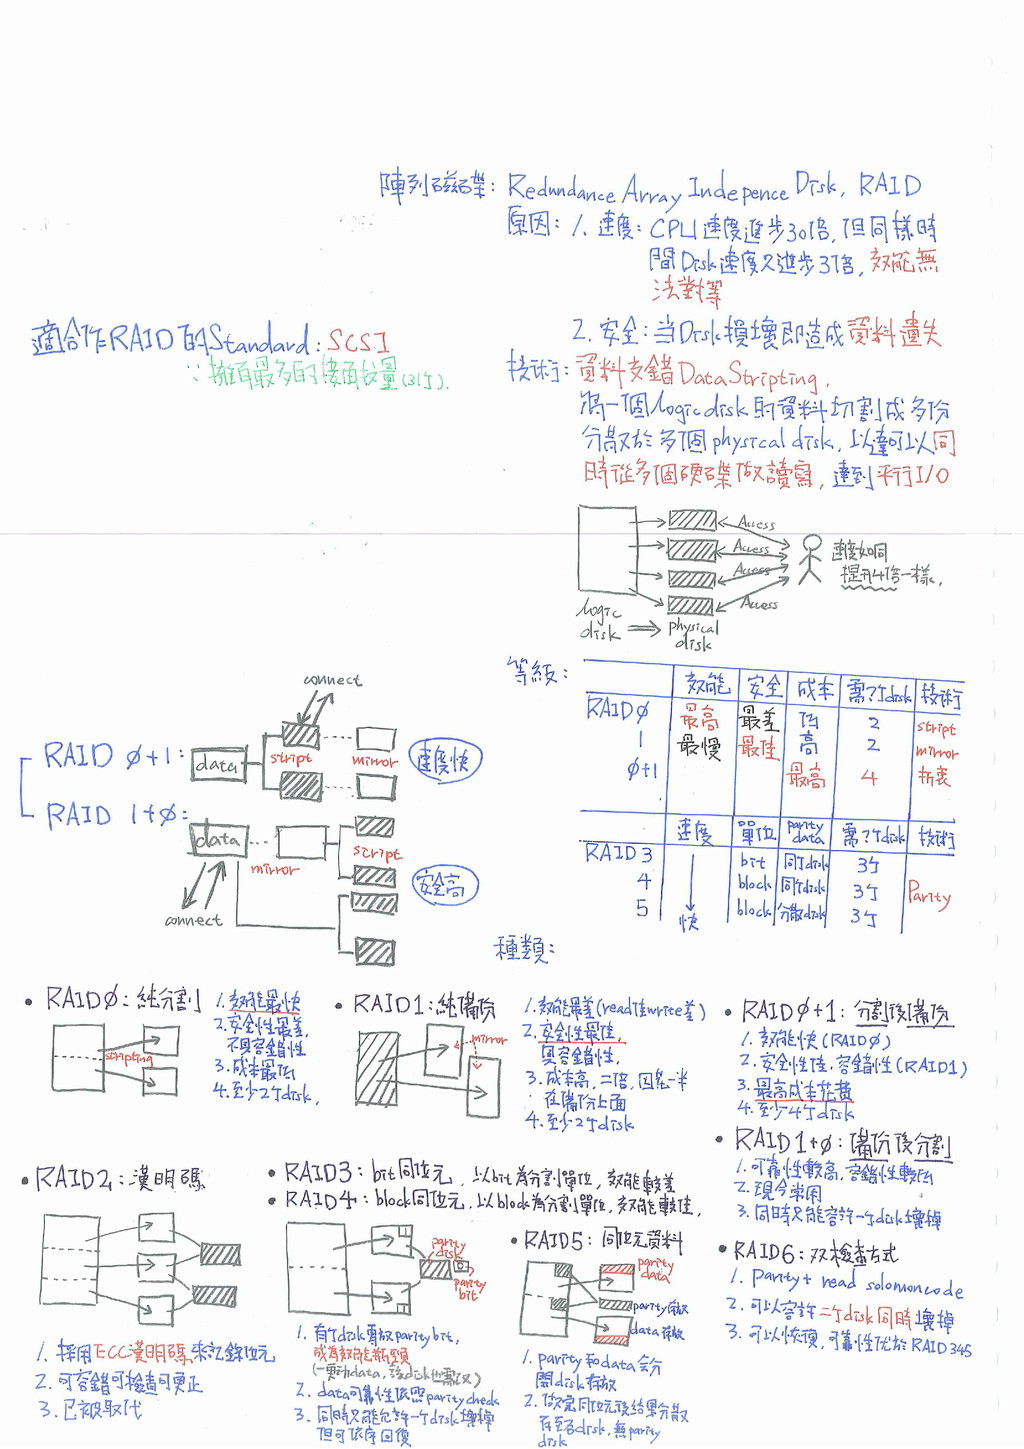 陣列磁碟: Redundance Array Indepence Disk, RAID
原因: 1. 速度: CPU速度進步30倍, 但同樣時
間Disk速度又進步3倍, 效能無
法對等
2. 安全: 當Disk損壞即造成資料遺失
適合作RAID的Standard: SCSI
∵擁有最多的接面數量(31個).
技術: 資料交錯Data Stripting,
將一個logic disk的資料切割成多份
分散於多個physical disk, 以達可以同
時從多個硬碟做讀寫, 達到平行I/O
Access
Access
Access
Access
速度如同
提升4倍一樣.
logic
disk
physical
disk
等級:
效能 安全 成本 需?个disk 技術
RAID0 最高 最差 低 2 stript
1 最慢 最佳 高 2 mirror
0+1 最高 4 折衷
速度 單位 parity data 需?个disk 技術
RAID 3 bit 同个disk 3个
4 block 同个disk 3个 Parity
5 快 block 分散disk 3个
connect
RAID 0+1: data stript mirror 速度快
RAID 1+0: data mirror script 安全高
connect
種類:
• RAID0: 純分割
stripting
1. 效能最快
2. 安全性最差,
不具容錯性
3. 成本最低
4. 至少2个disk,
• RAID1: 純備份
mirror
1. 效能最差(read佳write差)
2. 安全性最佳,
具容錯性,
3. 成本高, 二倍, 因花一半
在備份上面
4. 至少2个disk
• RAID0+1: 分割後備份
1. 效能快(RAID0)
2. 安全性佳, 容錯性(RAID1)
3. 最高成本花費
4. 至少4个disk
• RAID1+0: 備份後分割
1. 可靠性較高, 容錯性較低
2. 現今常用
3. 同時只能容許一个disk壞掉
• RAID2: 漢明碼
1. 採用ECC漢明碼來記錄位元
2. 可容錯可檢查可更正
3. 已被取代
• RAID3: bit同位元, 以bit為分割單位, 效能較差
• RAID4: block同位元, 以block為分割單位, 效能較佳,
parity
disk
parity
bit
1. 有个disk專放parity bit,
成為效能瓶頸
(一更動data, 該disk也需改)
2. data可靠性依照parity check
3. 同時只能允許一个disk壞掉
但可依序回復
• RAID5: 同位元資料
parity
data
parity存放
data存放
1. parity和data会分
開disk存放
2. 做完同位元後結果分散
在至各disk, 無parity
disk
• RAID6: 双檢查方式
1. Parity + read solomoncode
2. 可以容許二个disk同時壞掉
3. 可以恢復, 可靠性优於RAID345